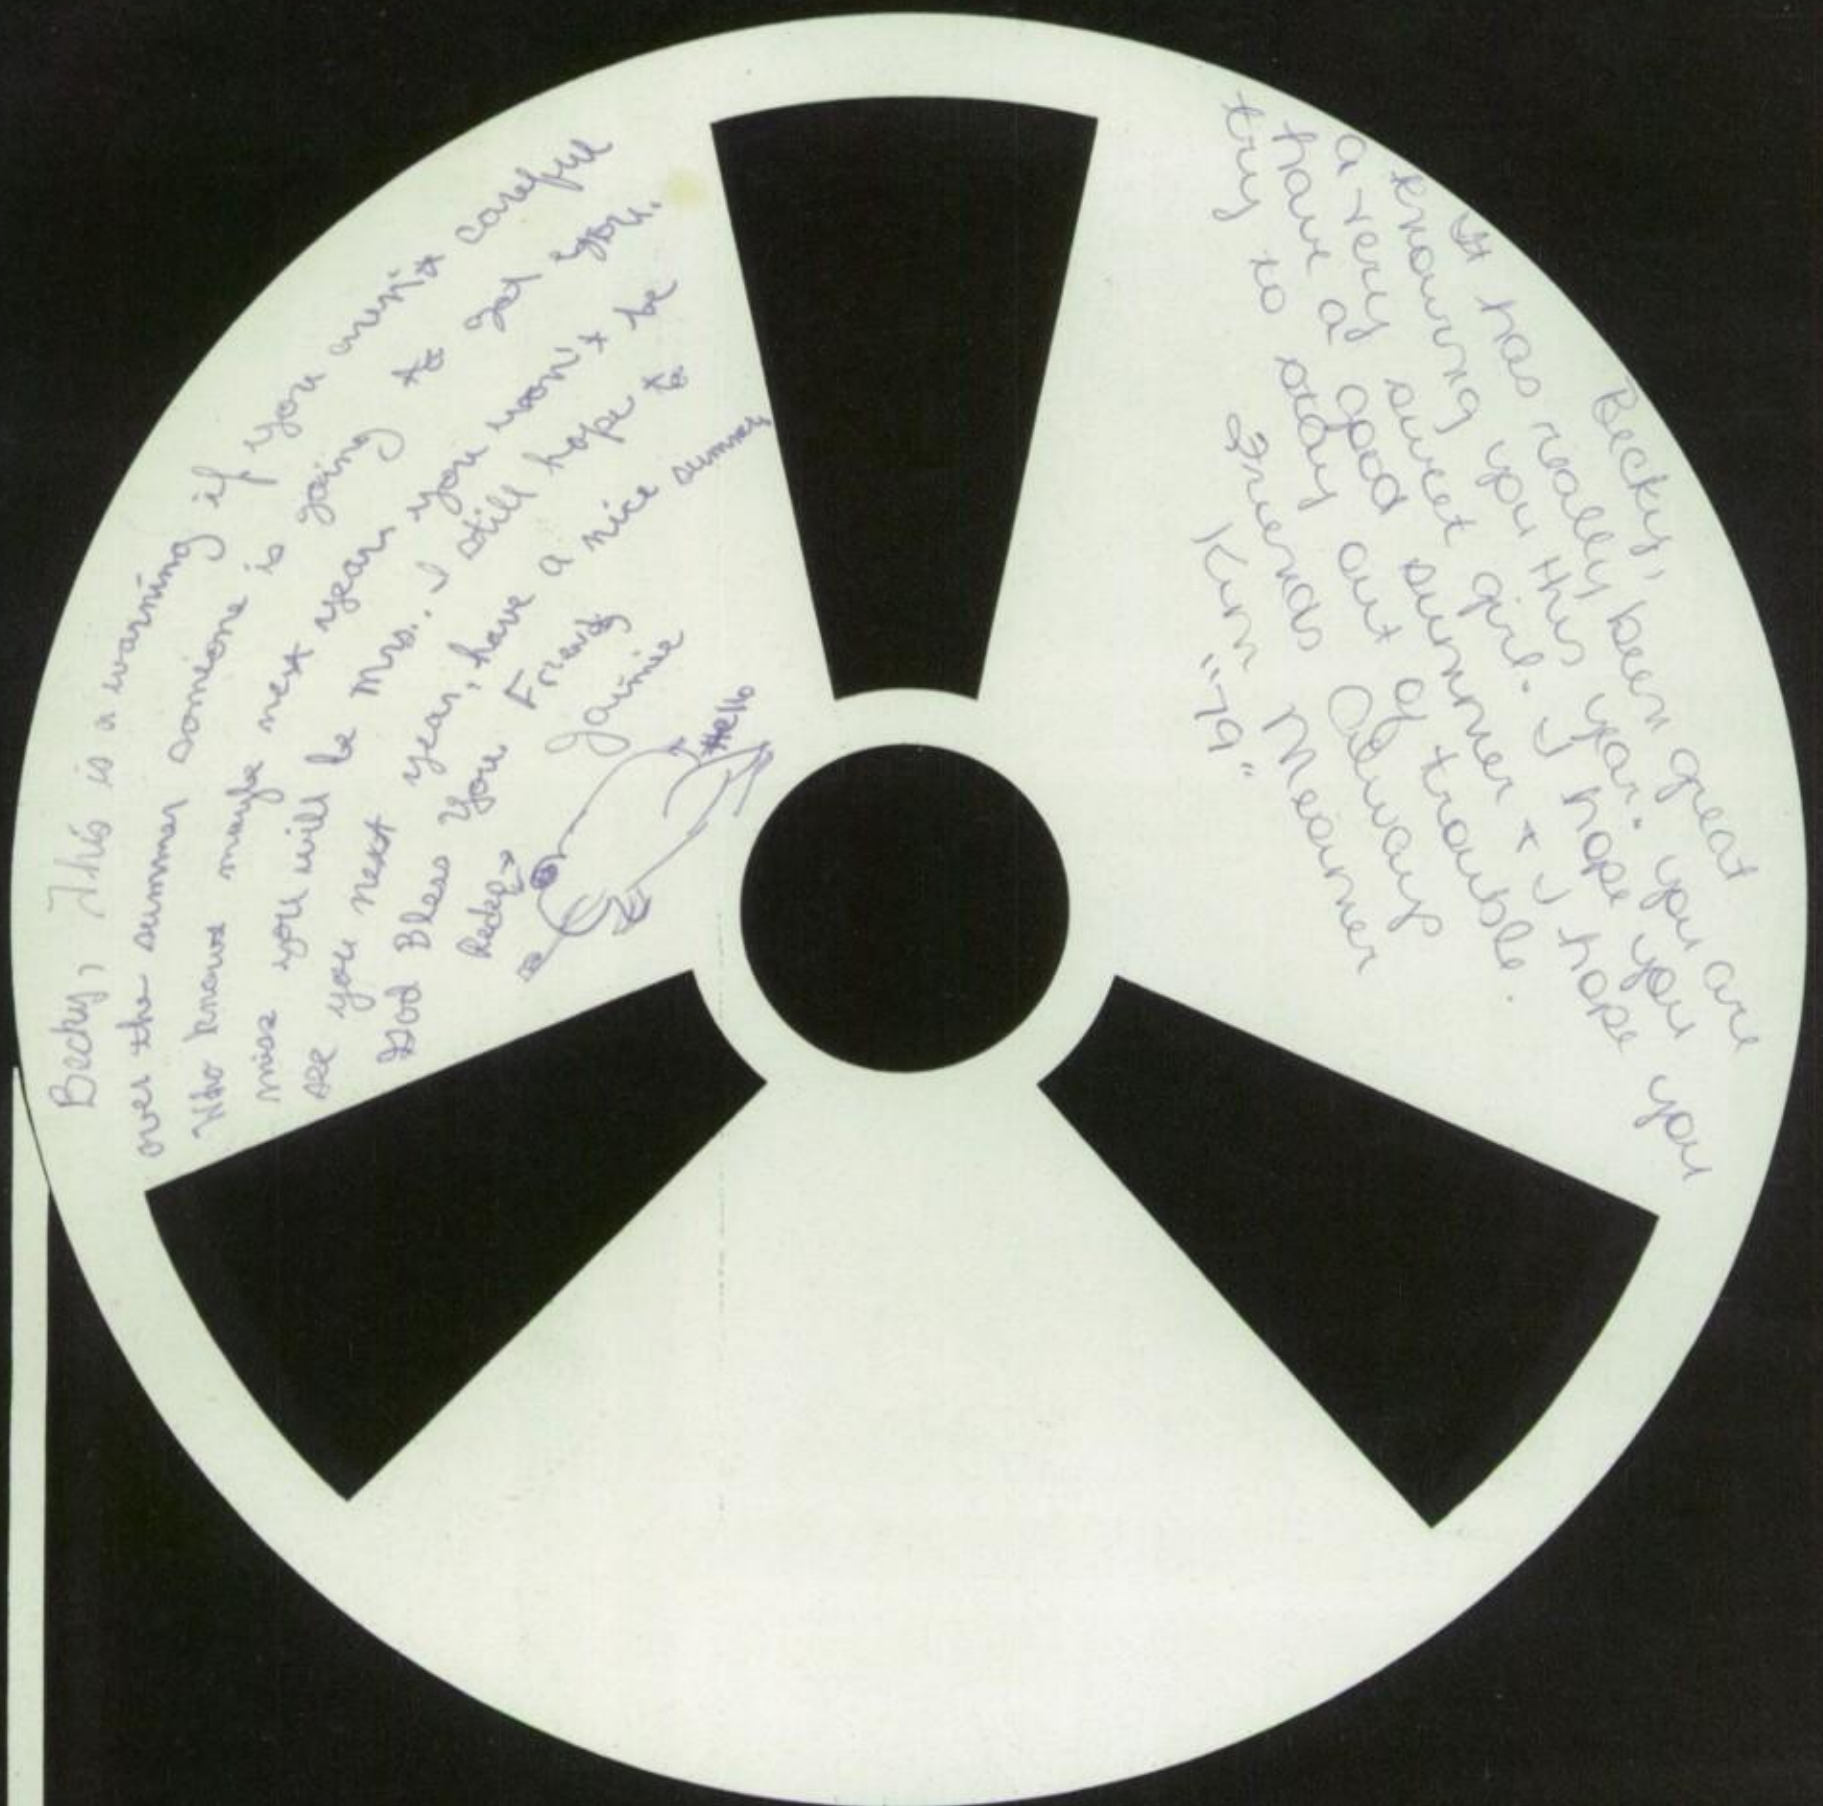 Becky, This is a warning if you aren't careful
over the summer someone is going to get you.
Who knows maybe next year you won't be
miss you will be Mrs. I still hope to
see you next year, have a nice summer
God Bless You Friends
Jaimie
Hello
Becky,
It has really been great
knowing you this year. you are
a very sweet girl. I hope you
have a good summer & I hope you
try to stay out of trouble.
Friends Always
Kim Mesmer
"79"